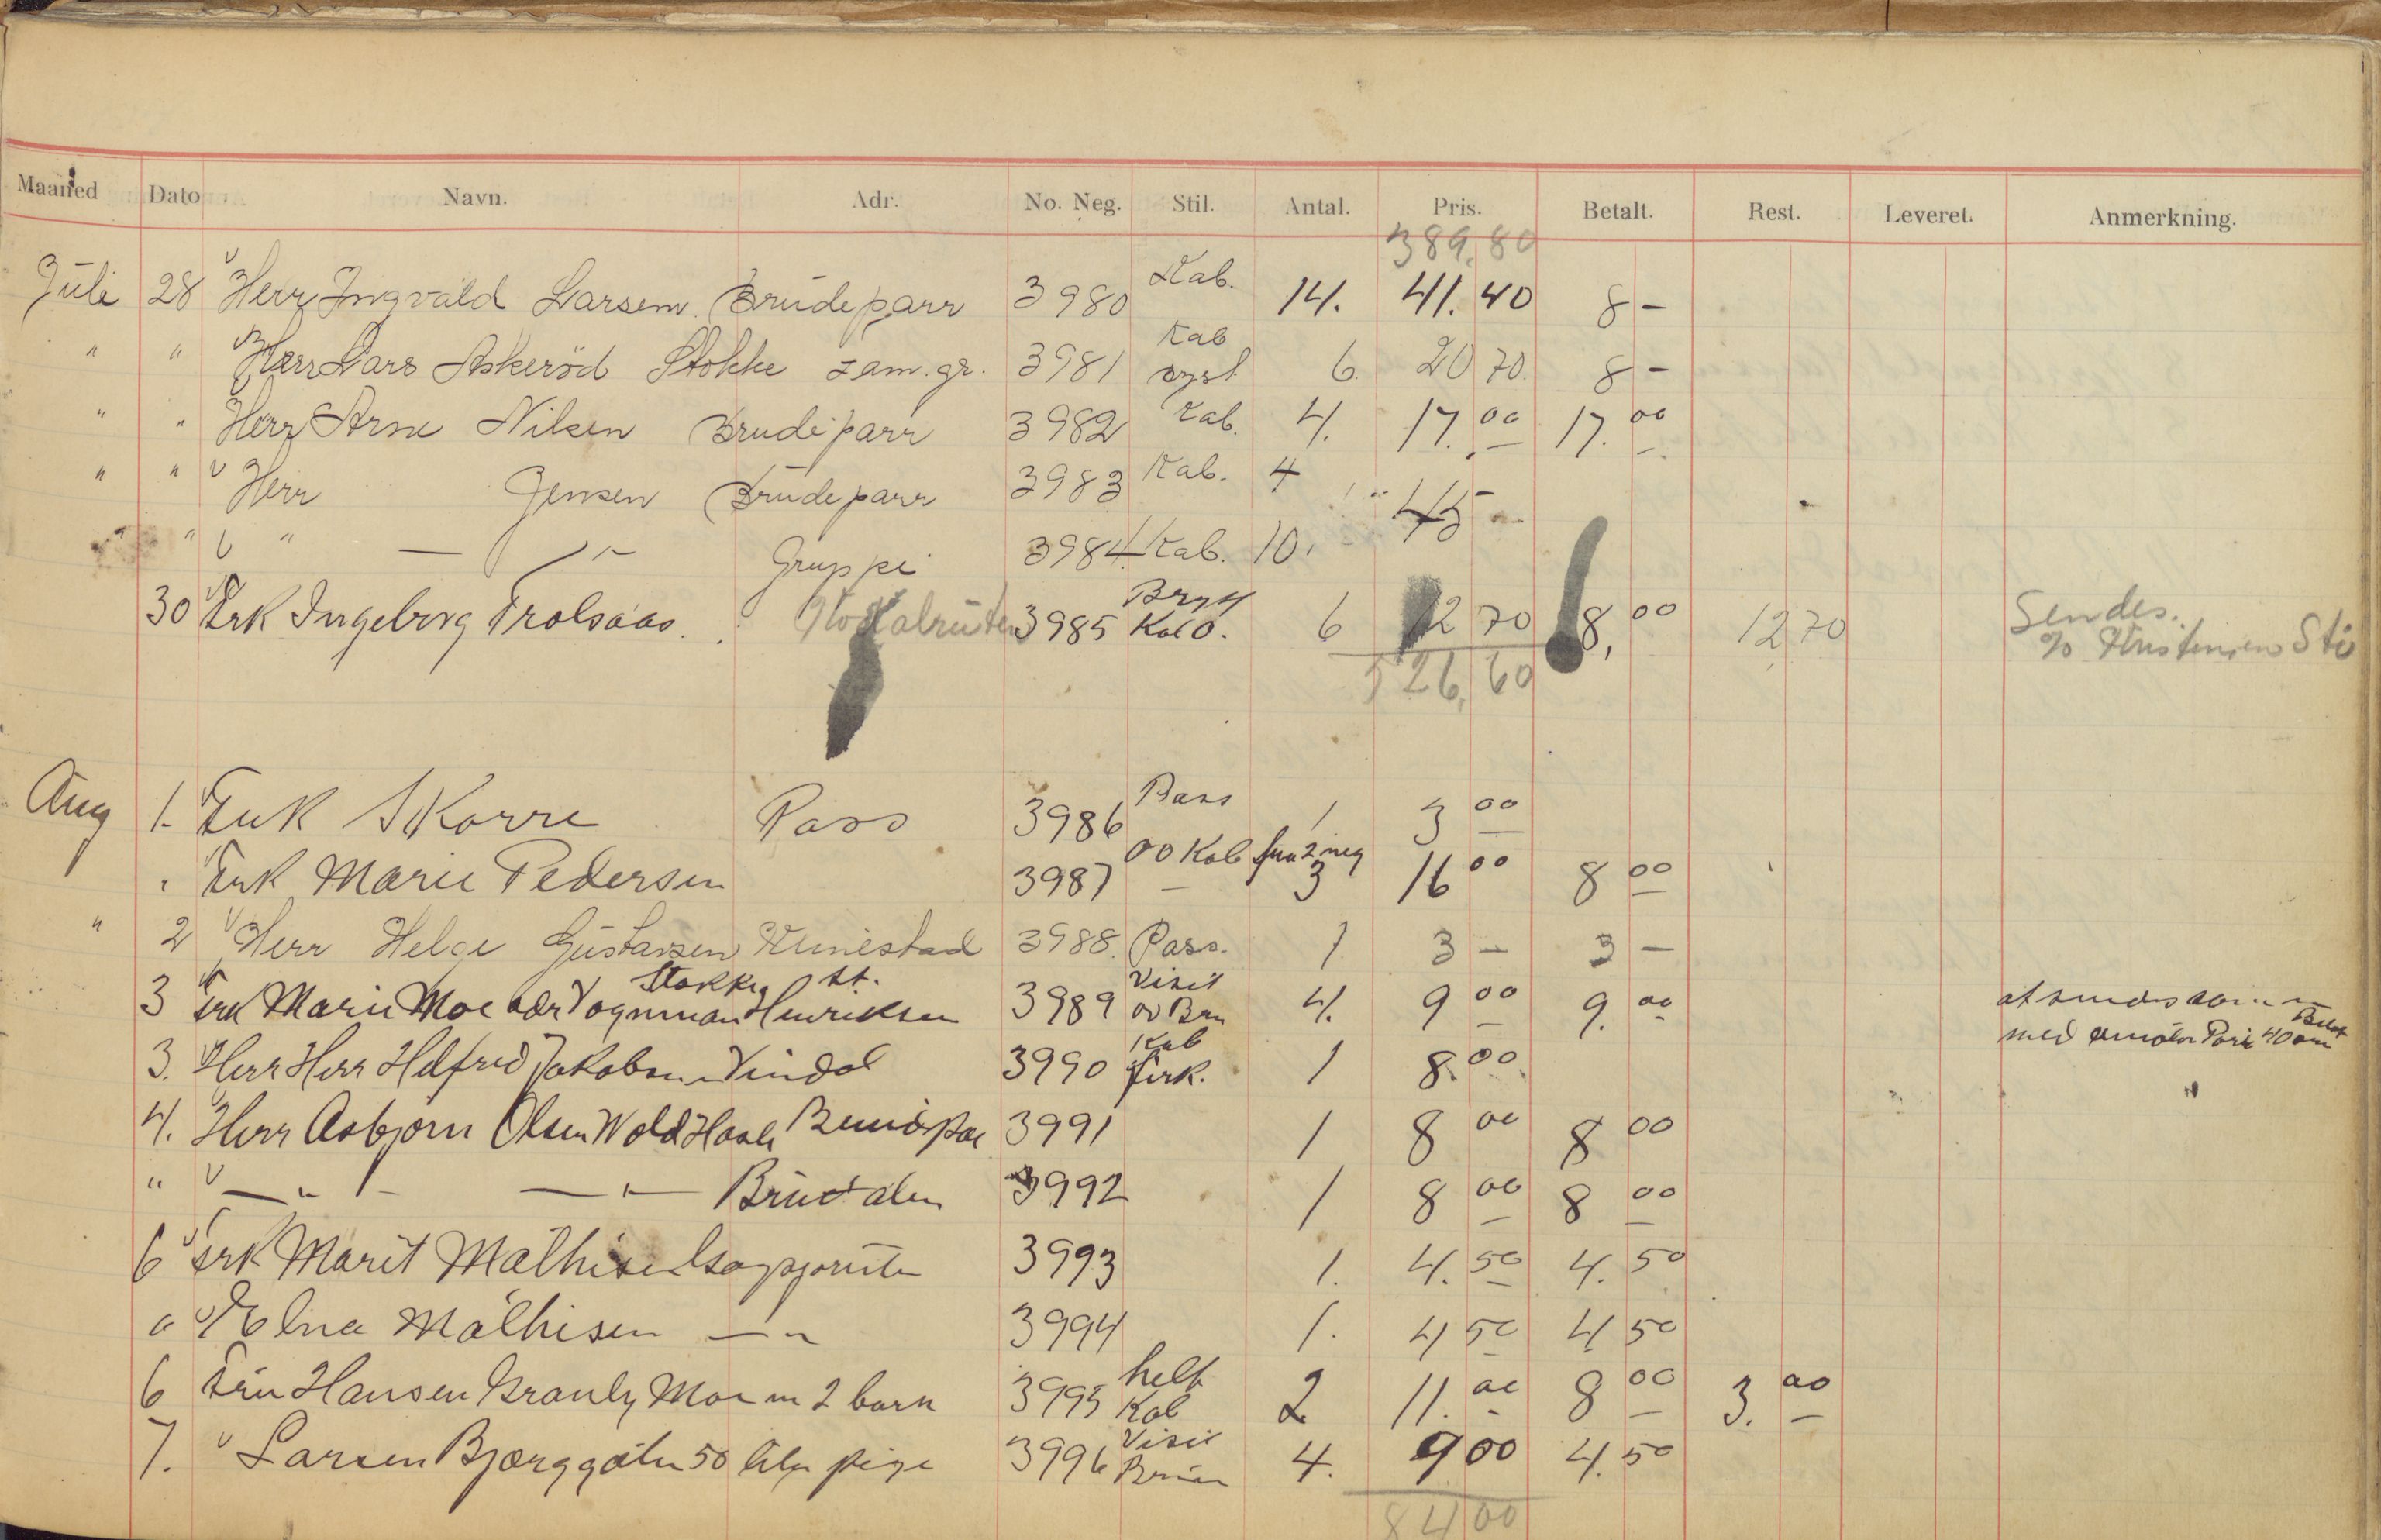 Maaned Dato Navn. Adr. No. Neg. Stil. Antal. Pris. Betalt. Rest. Leveret. Anmerkning.
389,80
Juli 28 Herr Ingvald Larsen. Brudeparr 3980 Kab. 14. 41.40 8 -
" " Herr Lars Askerød Stokke fam. gr. 3981 Kab bryst 6 20 70. 8 -
" " Herr Arne Nilsen Brudeparr 3982 Kab. 4. 17.00 17.00
" " Herr Jensen Brudeparr 3983 Kab. 4 45 -
" " " — " — Gruppe 3984 Kab. 10.
30 Frk Ingeborg Trolsaas. 3985 Bryst Kab 6 12 70 8,00 12 70 Sendes.
526,60 % Kristensen
Aug 1. Frk Skorre Pass 3986 Pass 1 3 00
" Frk Marie Pedersen 3987 00 Kab fra 2 neg 3 16 00 8 00
" 2 Herr Helge Gustavsen Unnestad 3988. Pass. 1 3 - 3 -
Stokke st.
3 Frk Marie Moe adr Vognman Henriksen 3989 Visit 00 Brn 4. 9 00 9.00
med Paris 40 øre
3. Herr Herr Halfred Jakobsen Vindal 3990 Kab 1 8.00
4. Herr Asbjørn Olsen Wold Hasle 3991 1 8 00 8 00
" — " — — " — Brud alen 3992 1 8 00 8 00
6 Frk Marit Mathisen 3993 1. 4.50 4.50
" Elna Mathisen — " 3994 1. 4 50 4 50
6 Fru Hansen Granly Moe m 2 barn 3995 helt Kab 2 11.00 8 00 3.00
7. Larsen Bjerggaten 50 lita pige 3996 Visit Brun 4. 9 00 4.50
84 00